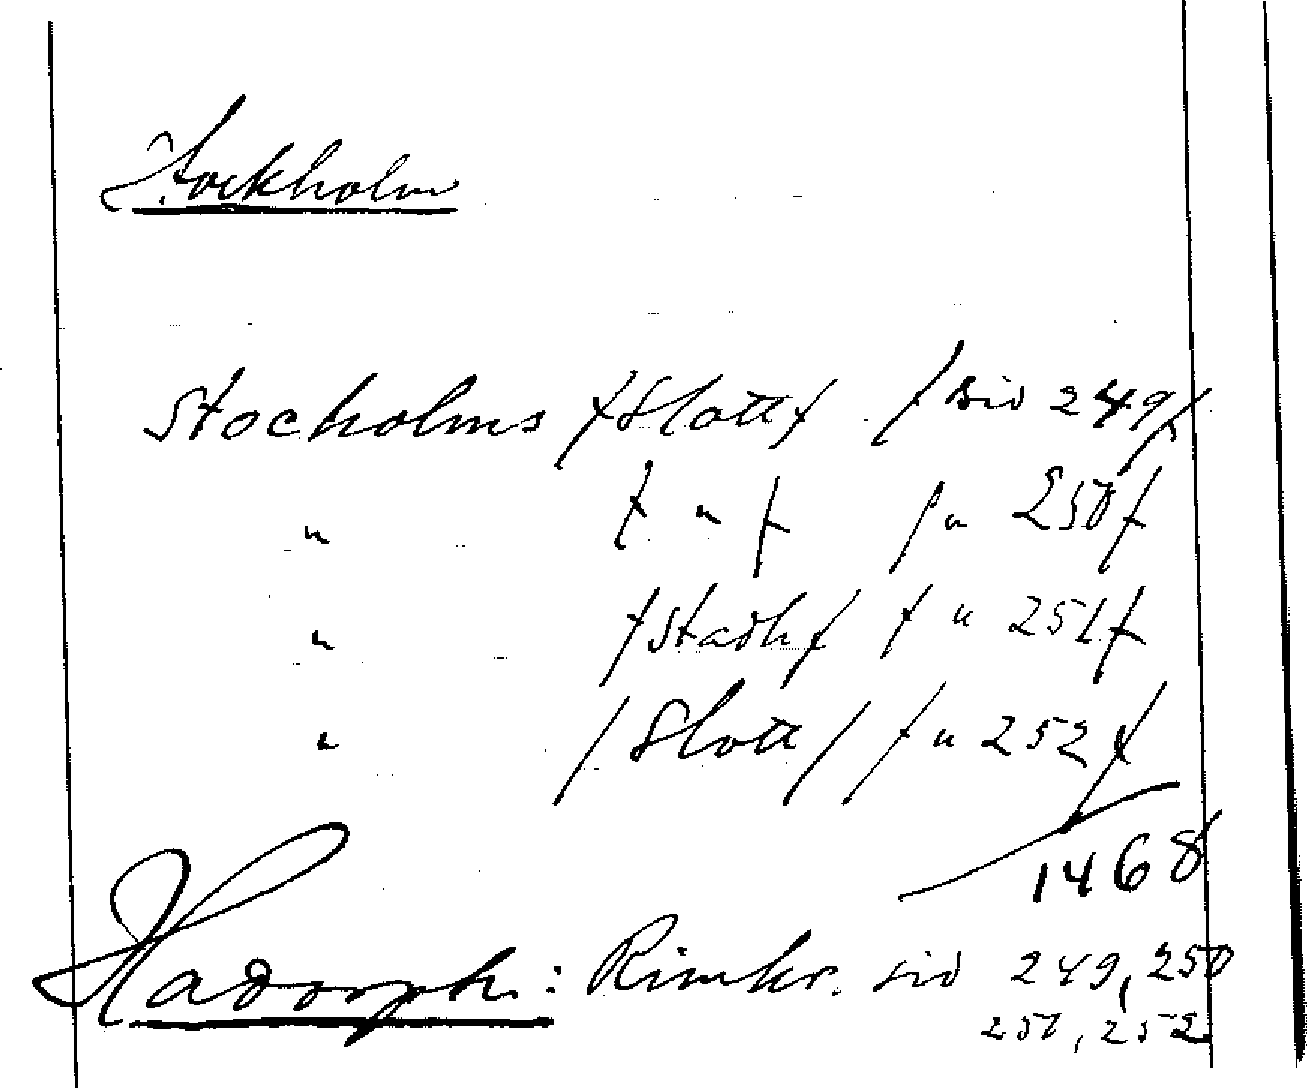 Stockholm
Stocholms /Slott/ /sid 249/
" / " / / " 250/
" /Stadh/ / " 251/
" /Slott/ / " 252/
1468
Hadorph: Rimkr. sid 249, 250
251, 252